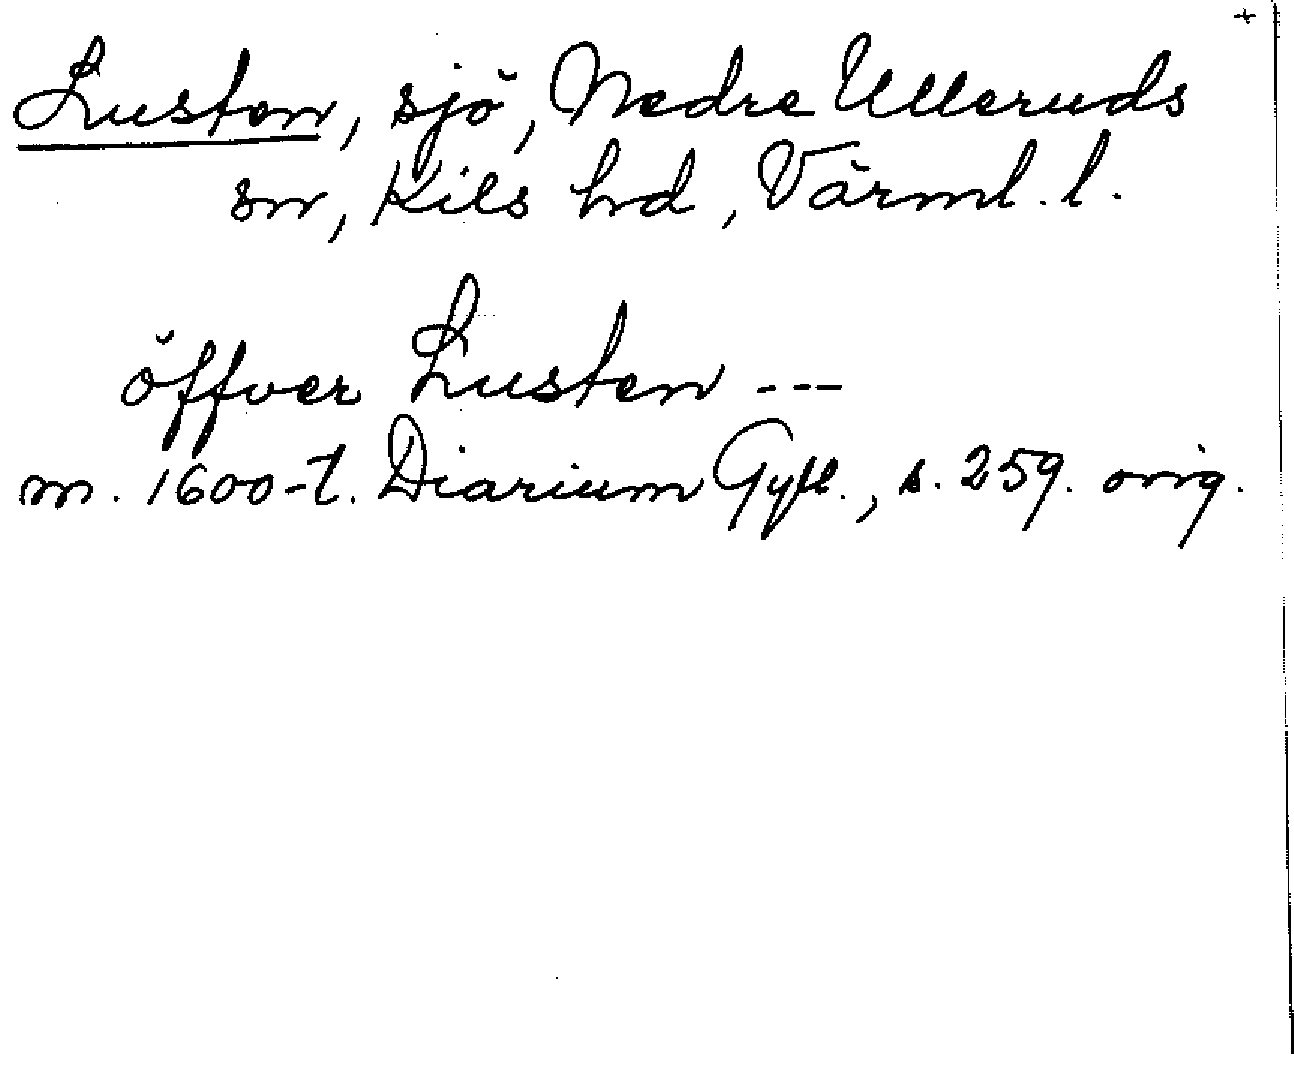 +
Lusten, sjö, Nedre Ulleruds
sn, Kils hd, Värml. l.
öffver Lusten ---
m. 1600-t. Diarium Gyll., s. 259. orig.